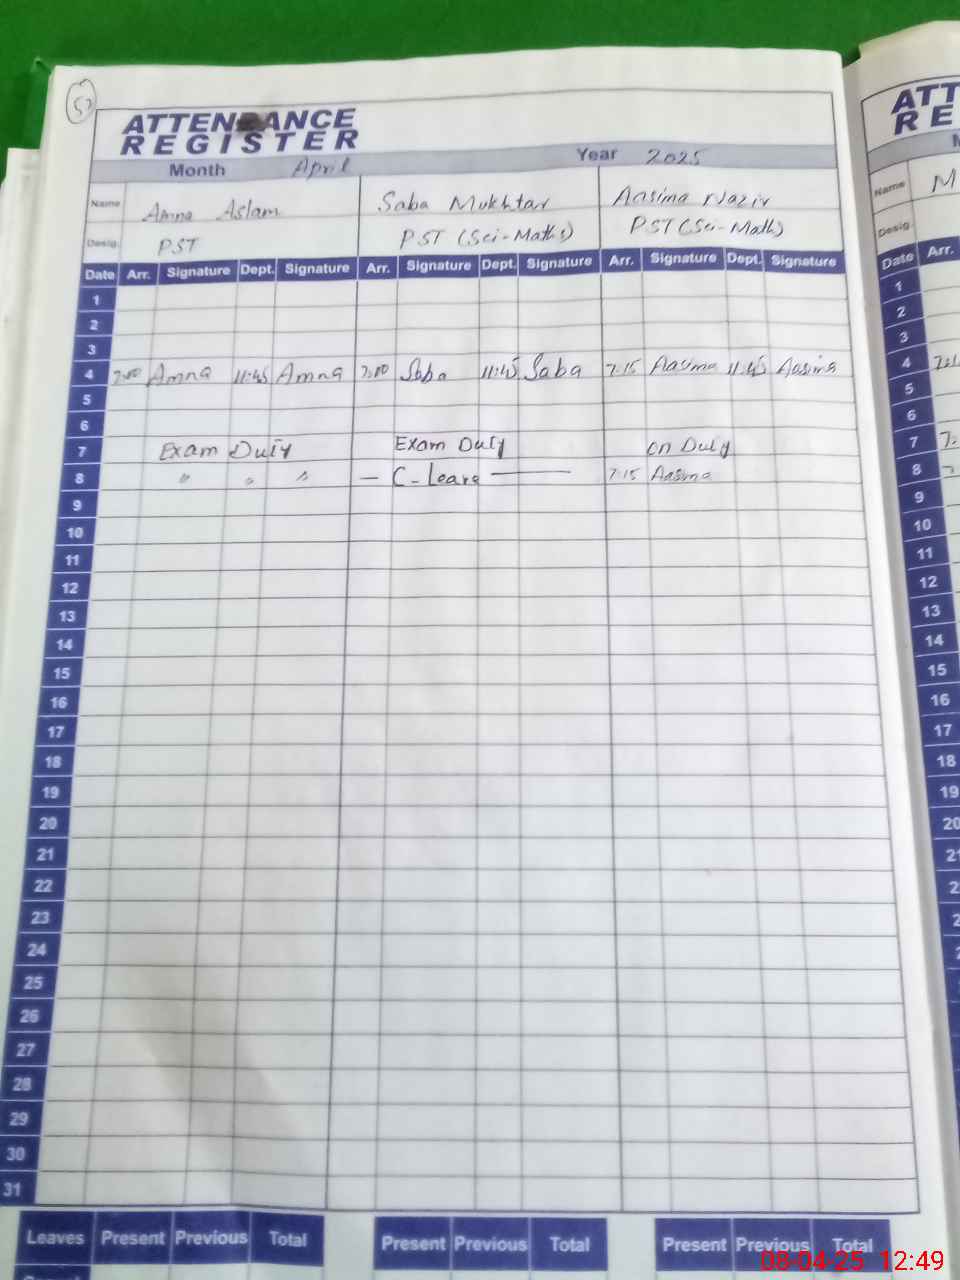 52
ATTENDANCE
REGISTER
Month April Year 2025
Name Amna Aslam Saba Mukhtar Aasima Nazir
Desig. PST PST (Sci-Maths) PST (Sci-Math)
Date Arr. Signature Dept. Signature Arr. Signature Dept. Signature Arr. Signature Dept. Signature
1
2
3
4 7:00 Amna 11:45 Amna 7:00 Saba 11:45 Saba 7:15 Aasima 11:45 Aasima
5
6
7 Exam Duty Exam Duty On Duty
8 " " " — C-Leave — 7:15 Aasima
9
10
11
12
13
14
15
16
17
18
19
20
21
22
23
24
25
26
27
28
29
30
31
Leaves Present Previous Total Present Previous Total Present Previous Total
ATT
RE
M
Name M
Desig.
Date Arr.
1
2
3
4
5
6
7 7.
8
9
10
11
12
13
14
15
16
17
18
19
20
21
08-04-25 12:49